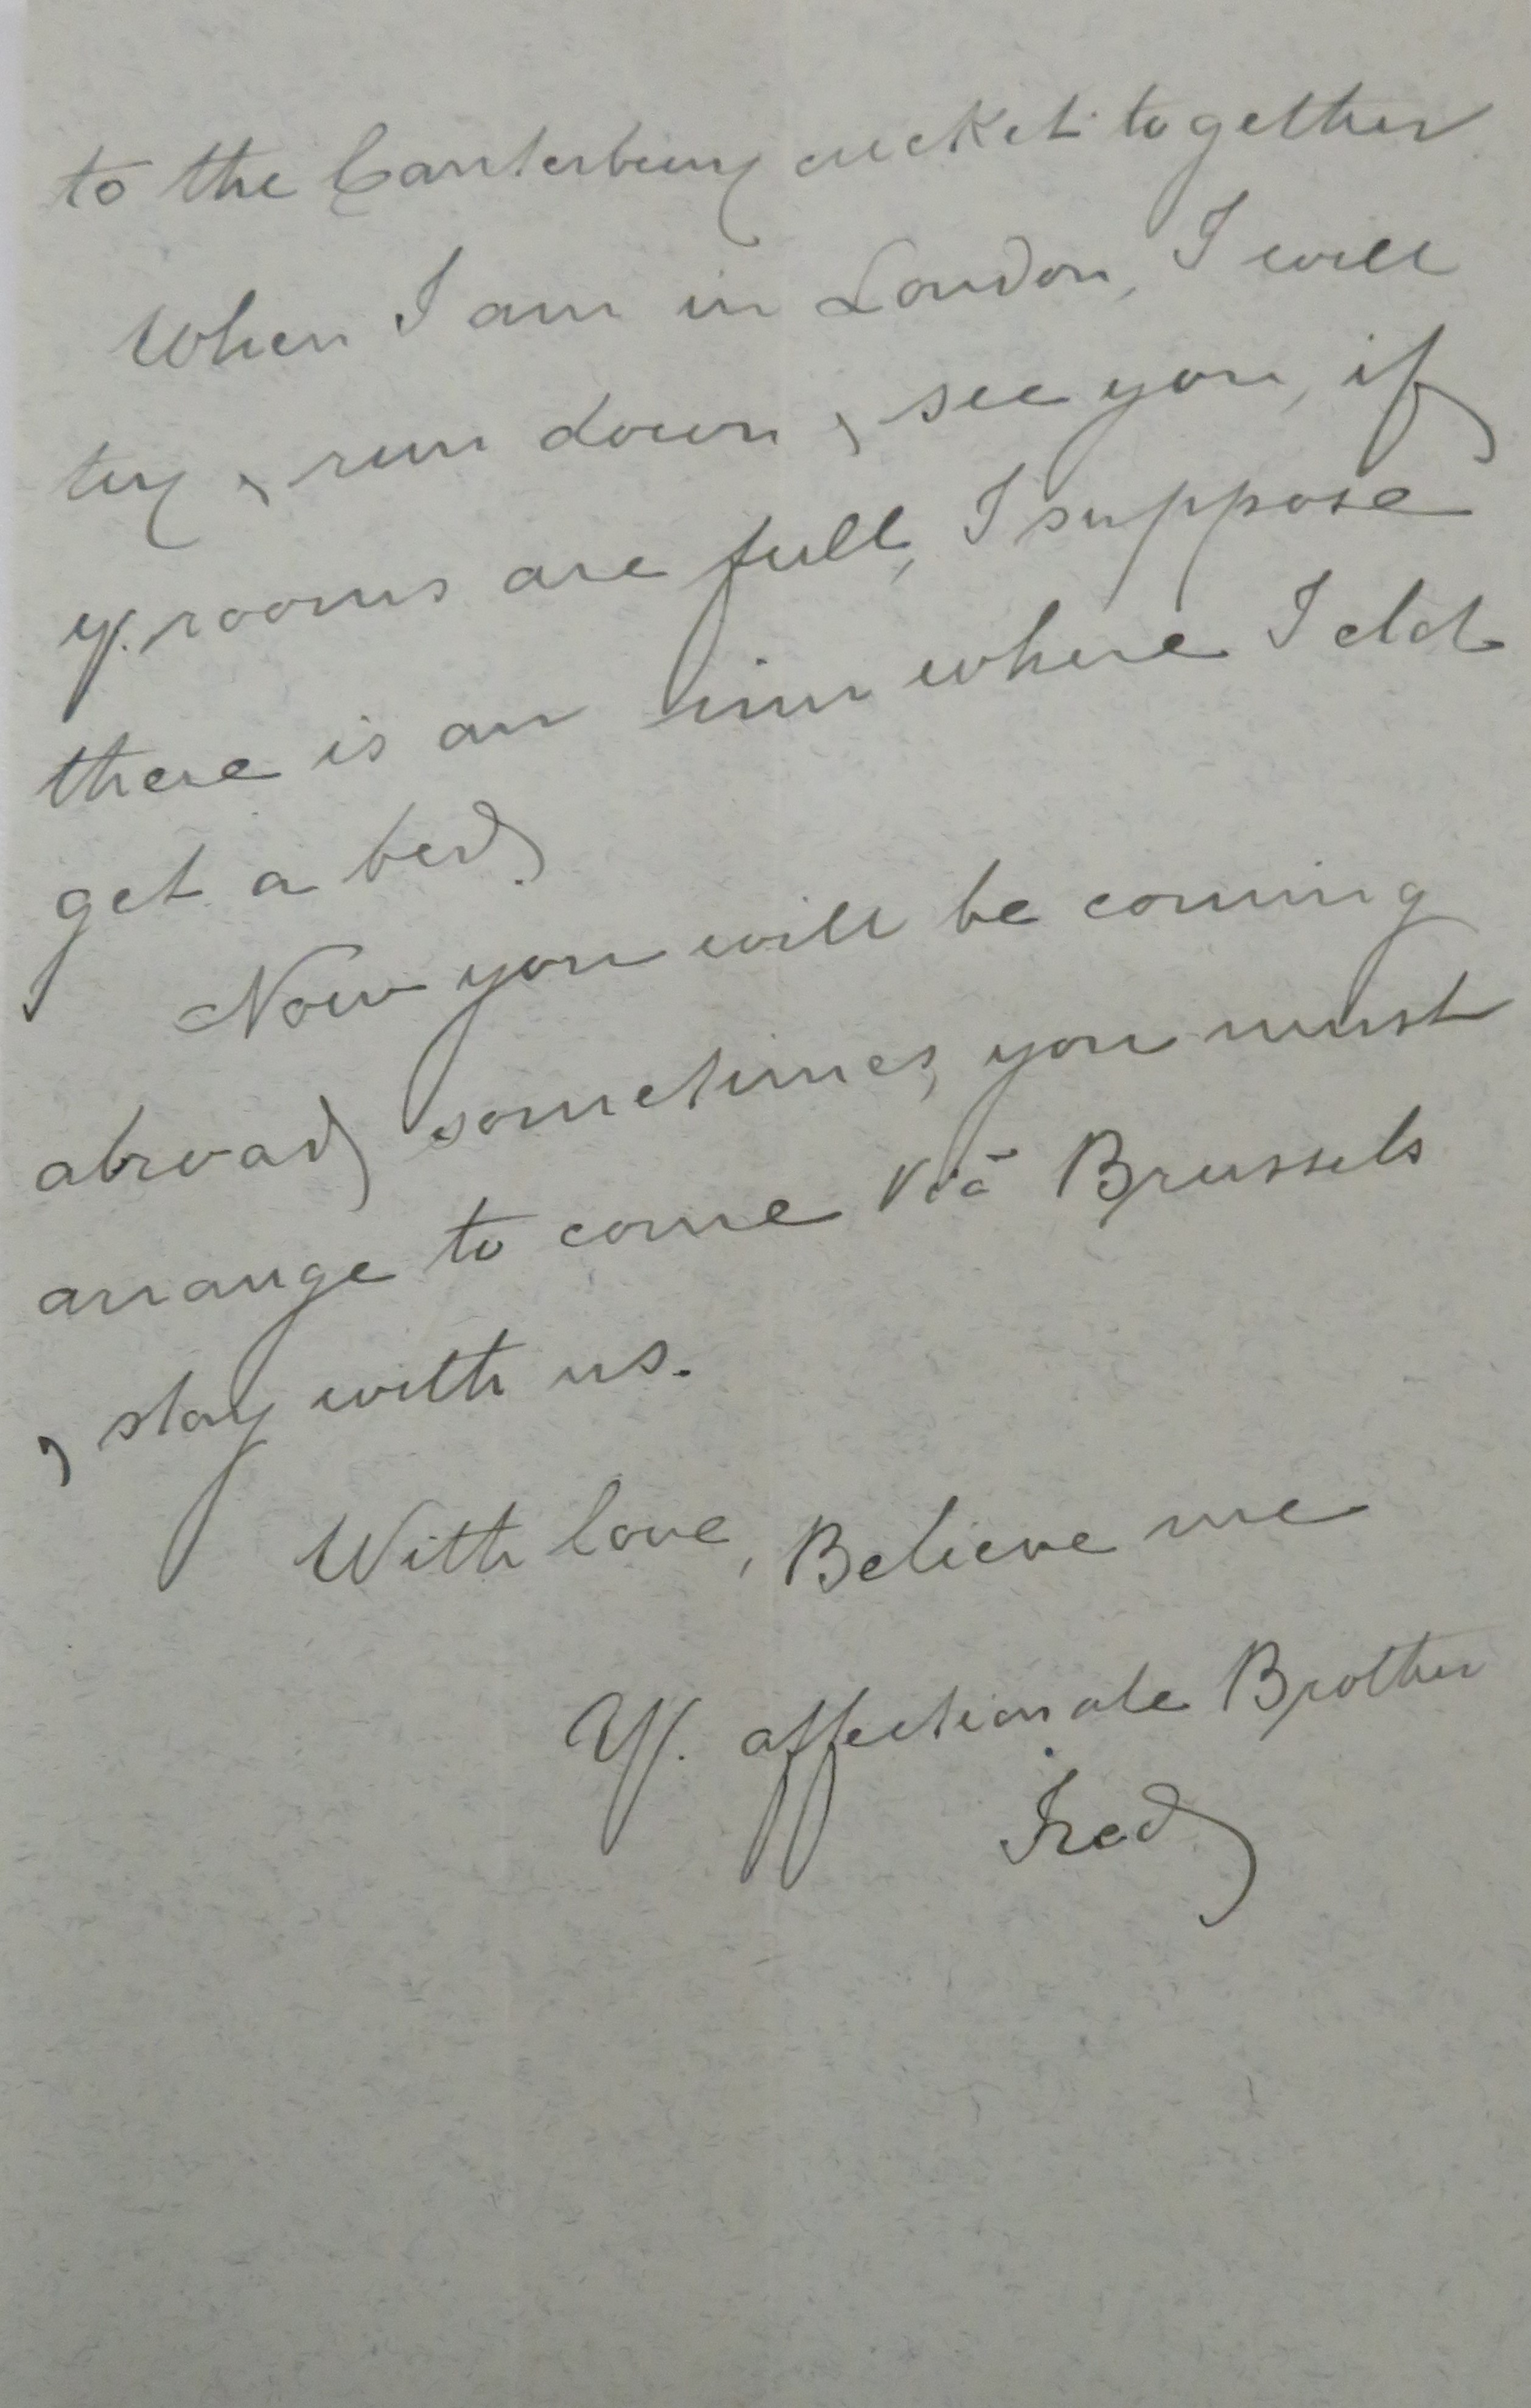 to the Canterbury cricket together
When I am in London, I will
try & run down & see you, if
yr. rooms are full, I suppose
there is an inn where I cld
get a bed.
Now you will be coming
abroad sometimes, you must
arrange to come viâ Brussels
& stay with us.
With love, Believe me
Yr. affectionate Brother
Fred